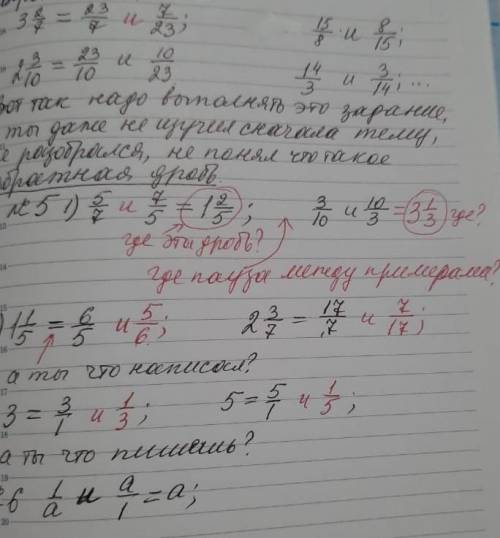 3 2/7 = 23/7 и 7/23; 15/8 и 8/15;
2 3/10 = 23/10 и 10/23 14/3 и 3/14; ...
Вот так надо выполнять это задание,
ты даже не изучил сначала тему,
не разобрался, не понял что такое
обратная дробь.
№5 1) 5/7 и 7/5 = 1 2/5; 3/10 и 10/3 = 3 1/3 где?
где эти дробь?
где пауза между примерами?
) 1 1/5 = 6/5 и 5/6; 2 3/7 = 17/7 и 7/17;
а ты что написал?
3 = 3/1 и 1/3; 5 = 5/1 и 1/5;
а ты что пишешь?
6 1/a и a/1 = a;